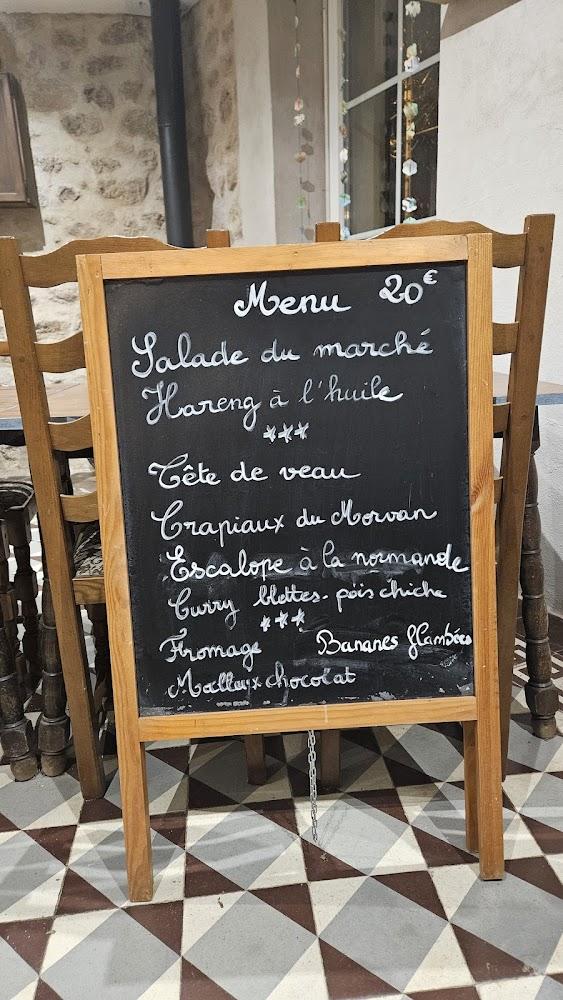 Menu 20€
Salade du marché
Hareng à l'huile
***
Tête de veau
Crapiaux du Morvan
Escalope à la normande
Curry blettes - pois chiche
***
Fromage Bananes flambées
Moelleux chocolat